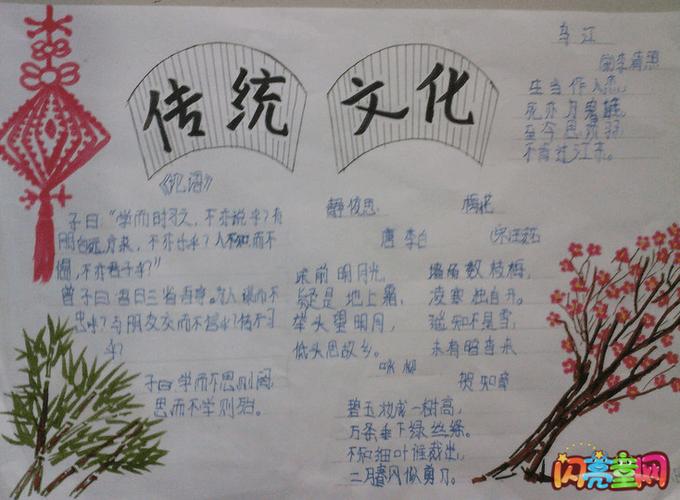 传统文化
乌江
宋李清照
生当作人杰,
死亦为鬼雄,
至今思项羽
不肯过江东。
《论语》
子曰:"学而时习之,不亦说乎?有
朋自远方来,不亦乐乎?人不知而不
愠,不亦君子乎?"
曾子曰:吾日三省吾身。为人谋而不
忠乎?与朋友交而不信乎?传不习
乎?
子曰:学而不思则罔,
思而不学则殆。
静夜思
唐 李白
床前明月光,
疑是地上霜,
举头望明月,
低头思故乡。
梅花
宋 王安石
墙角数枝梅,
凌寒独自开。
遥知不是雪,
未有暗香来
咏柳
贺知章
碧玉妆成一树高,
万条垂下绿丝绦。
不知细叶谁裁出,
二月春风似剪刀。
闪亮童网